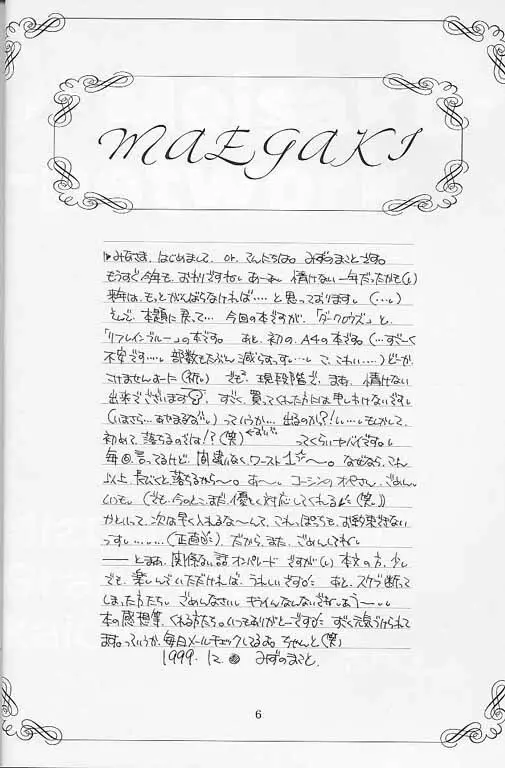 MAEGAKI
みなさま、はじめまして、or、こんにちは。みずのまことです。
もうすぐ今年も、おわりですねぃ。あーあ。情けない一年だったかも(し)
来年は、もっとがんばらなければ‥‥と思っております。(‥‥し)
そんで、本題に戻って… 今回の本ですが、「ダークロウズ」と、
「リフレインブルー」の本です。あと、初の、A4の本です。(…すごーく
不安です…。部数もたぶん減らすっす…。こ、こわい…)どーか、
こけませんよーに(祈)。でも、現段階で、まあ、情けない
出来でございます?。すごく、買ってくれた方には申しわけないです。
(いまさら…あやまるな。)っていうか…出るのか?!…もしかして、
初めて、落ちるのでは!?(笑) ってくらいヤバイです。
毎回言ってるけど、間違いなく、ワースト1〜。なぜなら、これ
以上、長びくと落ちるから〜。あー。コーシンのオヤさん、ごめん。
いつも。(でも、今のとこ、まだ、優しく対応してくれる(笑))
かといって、次は早く入れるな〜んて、これっぽっちも、お約束できない
っす…。(正直) だから、また、ごめんしてね。
とまあ、関係ない話オンパレードですが(し)本文の方、少し
でも、楽しんでいただければ、うれしいです。あと、スケブ断って
しまった方たち。ごめんなさい。
本の感想等、くれる方たち。いつもありがとーです。すごく元気づけられて
ます。っていうか、毎日メールチェックしてるよ。ちゃんと(笑)
1999.12. みずのまこと.
6